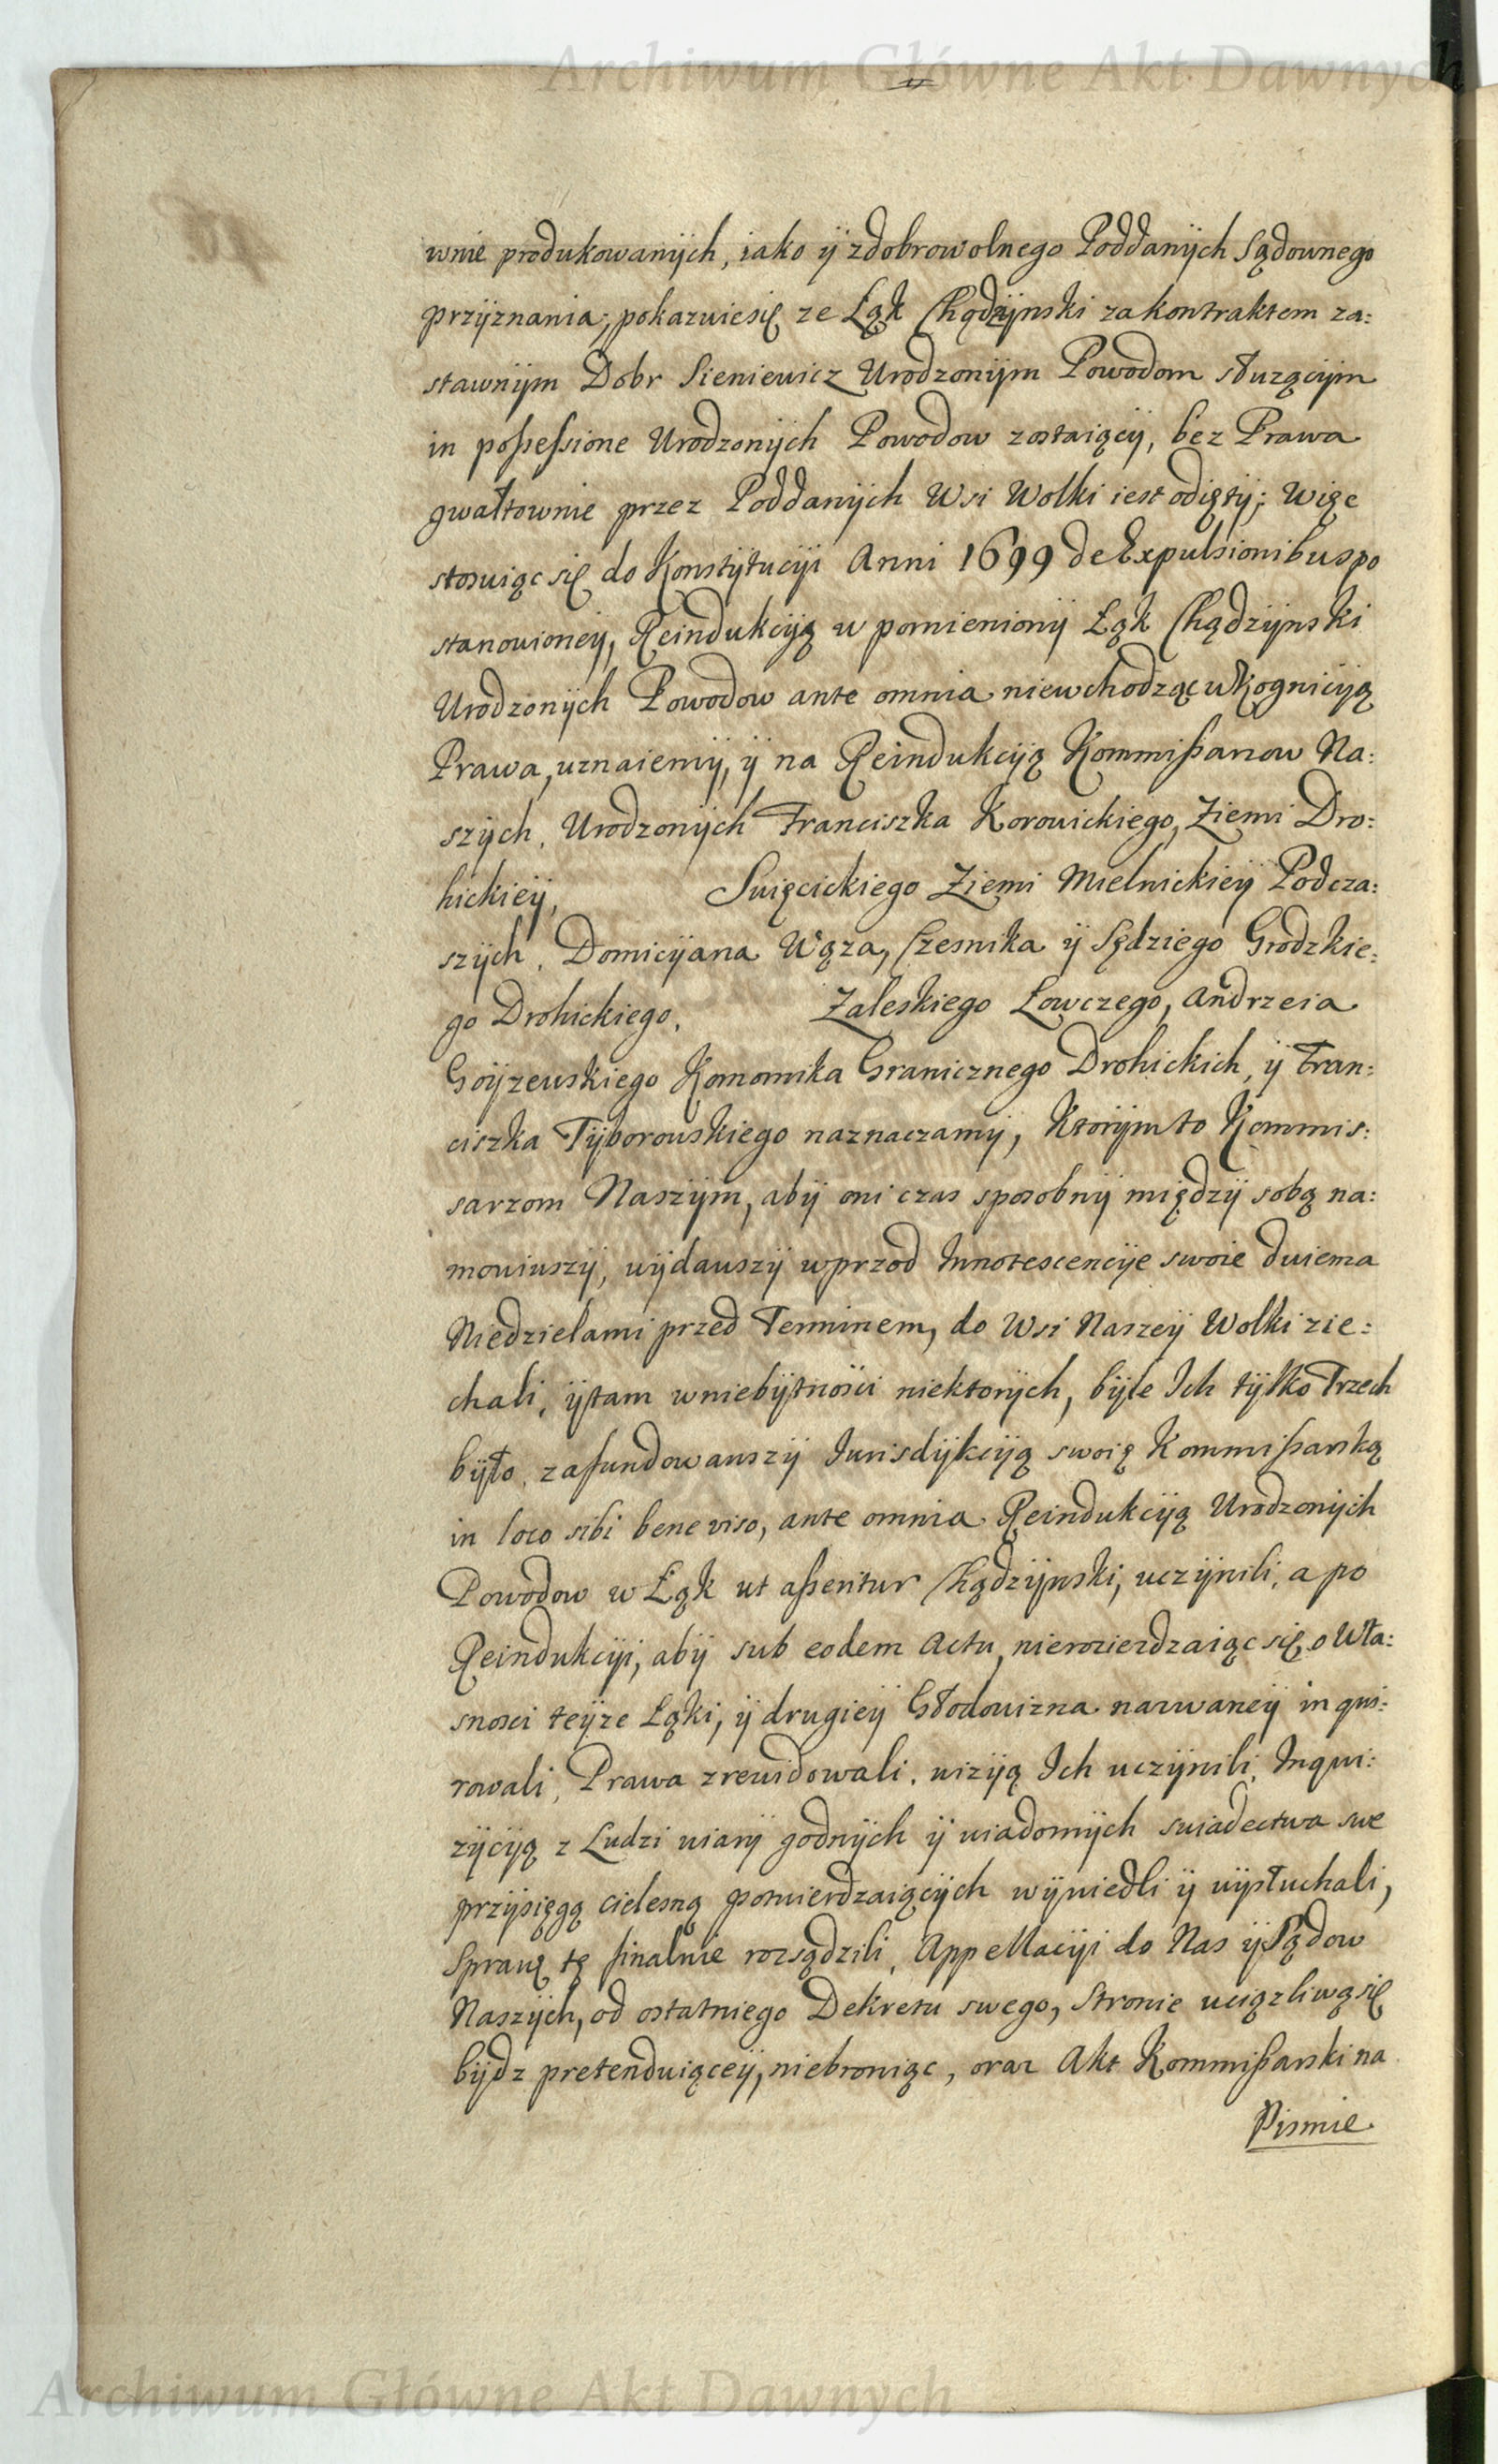 Archiwum Główne Akt Dawnych
wnie produkowanÿch, iako ÿ zdobrowolnego Poddanÿch Sądownego
przÿznania, pokazuiesię ze Łąk Chądzÿnski za kontraktem za:
stawnÿm Dobr Sieniewicz Urodzonÿm Powodom słuzącÿm
in possessione Urodzonÿch Powodow zostaiącÿ, bez Prawa
gwałtownie przez Poddanÿch Wsi Wolki iest odiętÿ; Więc
stosuiąc się do Konstÿtucÿi Anni 1699 de Expulsionibus po
stanowioneÿ, Reindukcÿą w pomienionÿ Łąk Chądzÿnski
Urodzonÿch Powodow ante omnia niewchodząc w Kognicÿą
Prawa, uznaiemÿ, ÿ na Reindukcÿą Kommissarzow Na:
szÿch, Urodzonÿch Franciszka Korowickiego, Ziemi Dro:
hickieÿ, Swięcickiego Ziemi Mielnickieÿ Podcza:
szÿch, Domicÿana Wąza, Czesnika ÿ Sędziego Grodzkie:
go Drohickiego, Zaleskiego Łowczego, Andrzeia
Goÿzewskiego Komornika Granicznego Drohickich, ÿ Fran:
ciszka Tÿborowskiego naznaczamÿ, Ktorÿm to Kommis:
sarzom Naszÿm, abÿ oni czas sposobnÿ międzÿ sobą na:
mowiwszÿ, wÿdawszÿ wprzod Innotescencÿe swoie dwiema
Niedzielami przed Terminem, do Wsi Naszeÿ Wolki zie:
chali, ÿ tam w niebÿtnosci niektorÿch, bÿle Ich tÿlko Trzech
bÿło, zafundowawszÿ Iurisdÿkcÿą swoię Kommissarską
in loco sibi bene viso, ante omnia Reindukcÿą Urodzonÿch
Powodow w Łąk ut asseritur Chądzÿnski, uczÿnili, a po
Reindukcÿi, abÿ sub eodem Actu, nierozierdzaiąc się, o Wła:
snosci teÿze Łąki, ÿ drugieÿ Głodowizna nazwaneÿ inqui:
rowali, Prawa zrewidowali, wizÿą Ich uczÿnili, Inqui:
zÿcÿą z Ludzi wiarÿ godnÿch ÿ wiadomÿch swiadectwa swe
przÿsięgą cielesną potwierdzaiącÿch wÿwiedli ÿ wÿsłuchali,
Sprawę tę finalnie rozsądzili, Appellacÿi do Nas ÿ Sądow
Naszÿch, od ostatniego Dekretu swego, Stronie uciązliwą się
bÿdz pretenduiąceÿ, niebroniąc, oraz Akt Kommissarski na
Pismie
Archiwum Główne Akt Dawnych